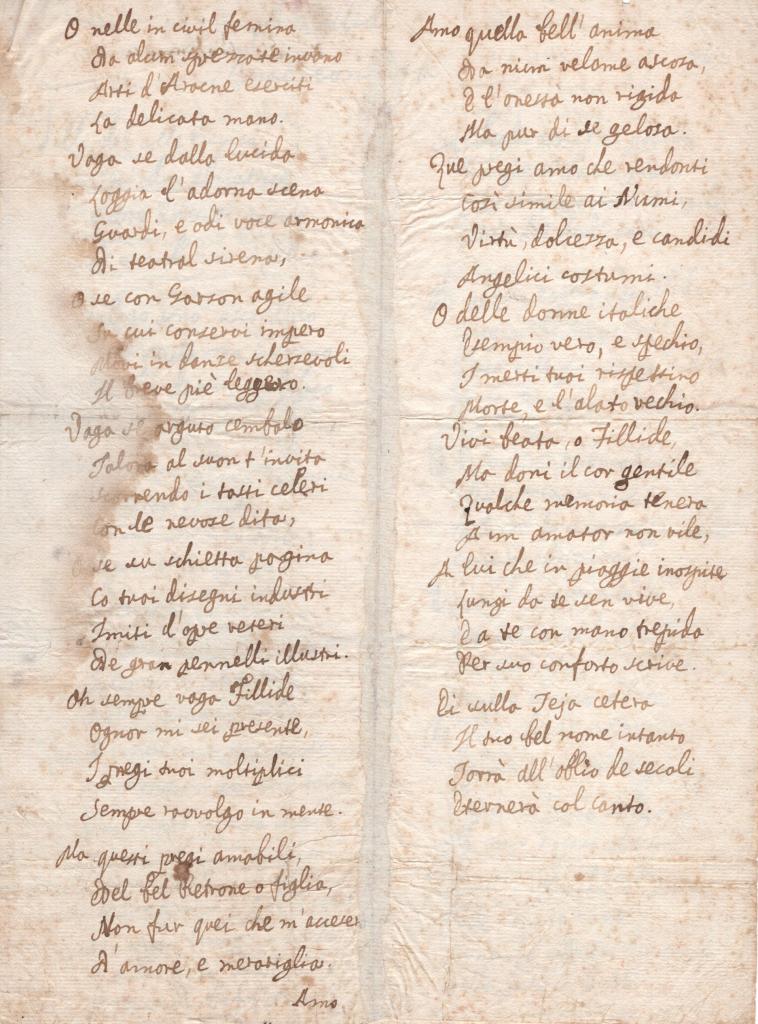 O nelle in civil femina
Da alcun sprezzate invano
Arti d'Aracne eserciti
La delicata mano.
Vaga se dalla lucida
Loggia l'adorna scena
Guardi, e odi voce armonica
Di teatral sirena,
O se con Garzon agile
In cui conservi impero
Movi in danze scherzevoli
Il breve piè leggero.
Vaga se arguto cembalo
Talora al suon t'invita
Scorrendo i tasti celeri
Con le nevose dita,
O se su schietta pagina
Co tuoi disegni industri
Imiti d'opre veteri
De gran pennelli illustri.
Oh sempre vaga Fillide
Ognor mi sei presente,
I pregi tuoi moltiplici
Sempre ravvolgo in mente.
Ma questi pregi amabili,
Del bel Retrone o figlia,
Non fur quei che m'acceser
D'amore, e meraviglia.
Amo
Amo quella bell'anima
Da niun velame ascosa,
E l'onestà non rigida
Ma pur di se gelosa.
Que pregi amo che rendonti
Così simile ai Numi,
Virtù, dolcezza, e candidi
Angelici costumi.
O delle donne italiche
Esempio vero, e spechio,
I merti tuoi rispettino
Morte, e l'alato vechio.
Vivi beata, o Fillide,
Ma doni il cor gentile
Qualche memoria tenera
A un amator non vile,
A lui che in piaggie inospite
Lungi da te sen vive,
E a te con mano trepida
Per suo conforto scrive.
Ei sulla Teja cetera
Il tuo bel nome intanto
Torrà all'oblio de secoli
Eternerà col canto.